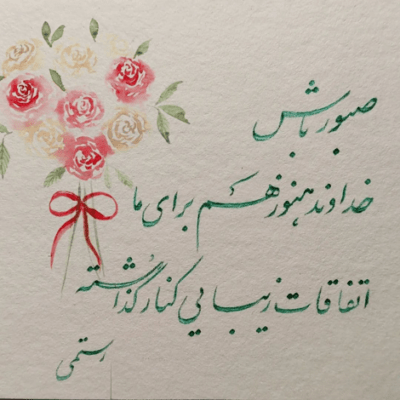 صبور باش
خداوند هنوز هم برای ما
اتفاقات زیبایی کنار گذاشته
رستمی